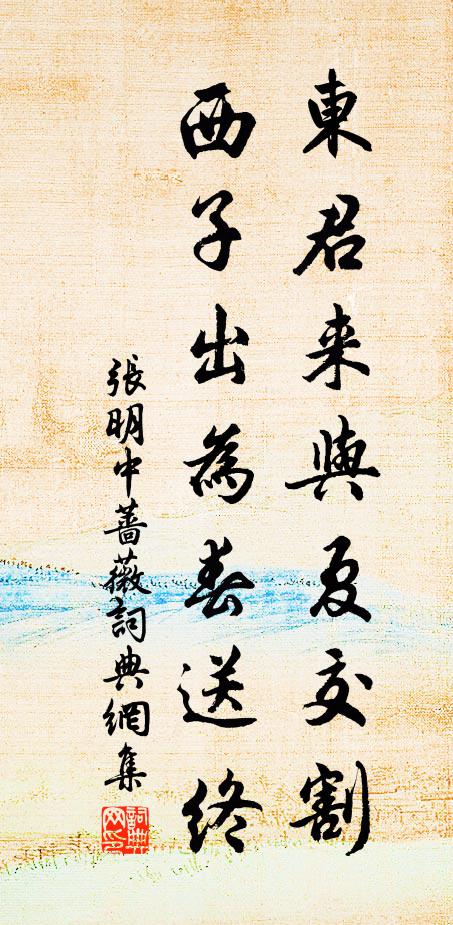 東君来與夏交割
西子出為春送終
張明中薔薇詞典網集
詞典网印